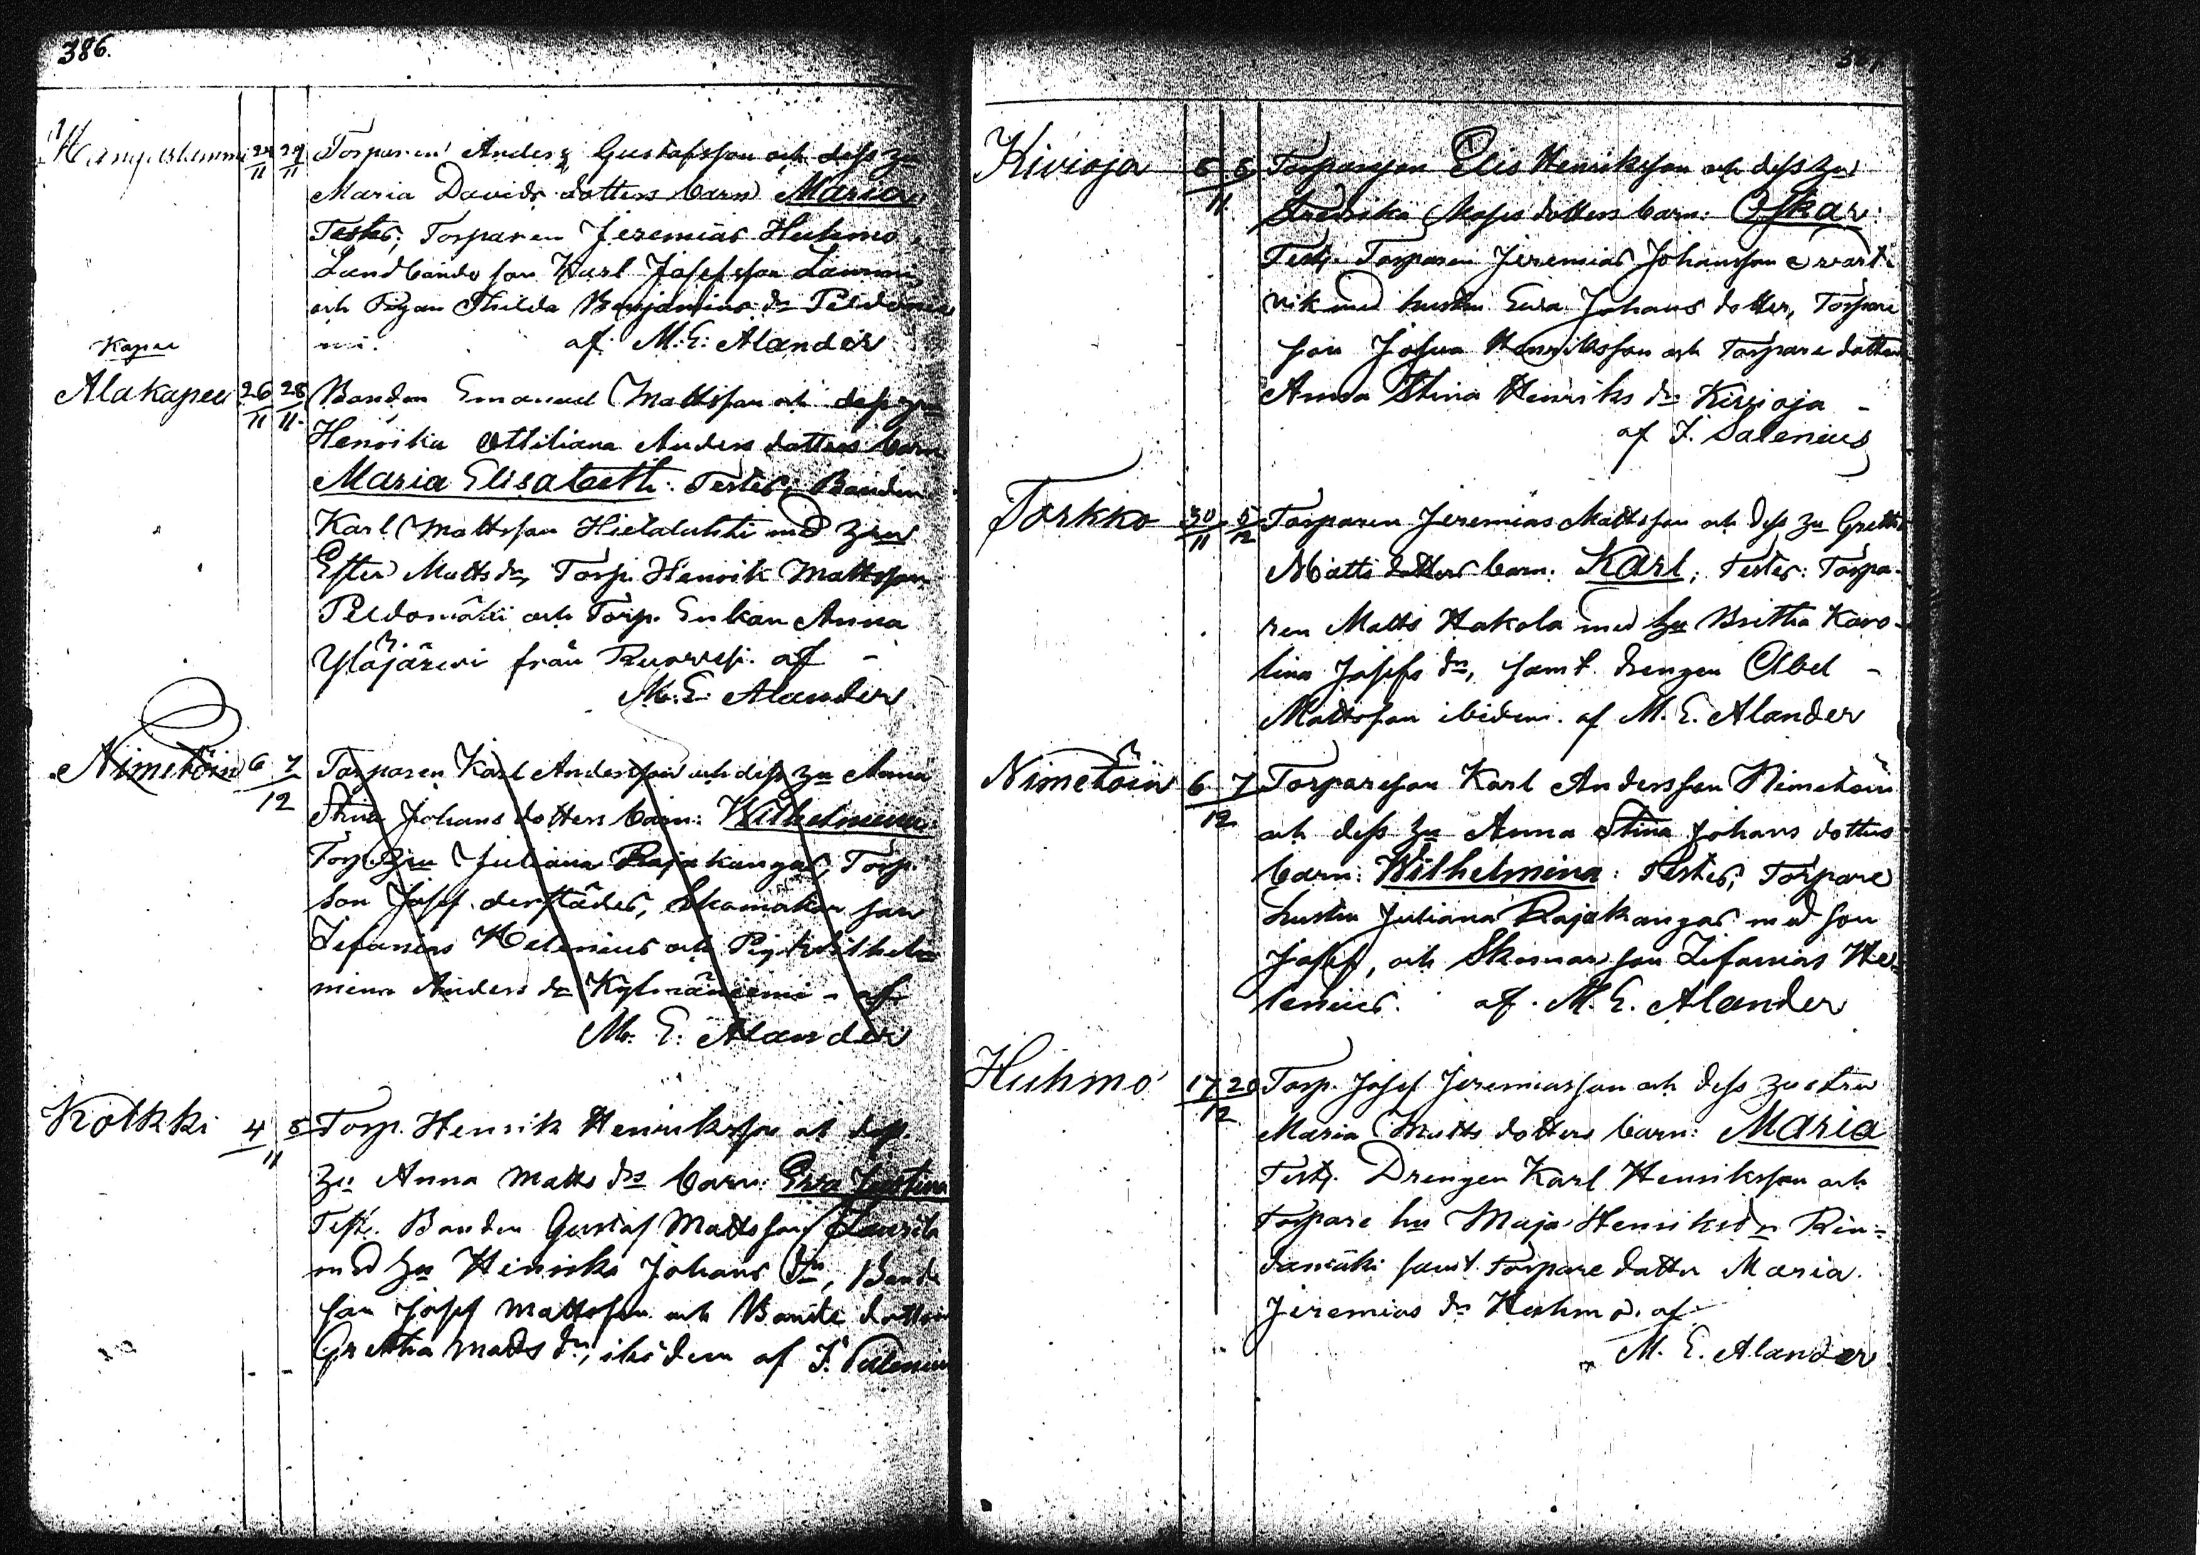 386.
24/11 29/11 Torparen Anders Gustafsson och dess hu
Maria Davids dotters barn Maria
Testes; Torparen Jeremias Huhmo,
Landbonde son Karl Josefsson Lammi
och Pigan Thilda Benjamins dr
mi. af M. E. Alander
Kapee
Alakapee 26/11 28/11 Bonden Emanuel Mattsson och dess hu
Henrika Ottiliana Anders dotters barn
Maria Elisabeth. Testes; Bonden
Karl Mattsson Hietalahti med hu
Ester Matts dr, Torp. Henrik Mattsson
Peldomäki och Torp. Enkan Anna
Yläjärwi från Ruovesi. af -
M. E. Alander
Nimetöin 6 7/12 Torparen Karl Andersson och dess hu Anna
Stina Johans dotters barn: Wilhelmina.
Torp. hu Juliana Rajakangas, Torp.
son Josef derstädes, Skomakar son
Zefanias Helenius och Pig. Wilhel-
mina Anders dr Kylmäniemi - af
M. E. Alander
Kotkki 4 8/11 Torp. Henrik Henriksson och dess
hu Anna Matts drs barn: Ewa Justina
Test. Bonden Gustaf Mattsson
med hu Henrika Johans dr, Bonde
son Josef Mattsson och Bonde dottren
Gretha Matts dr, ibidem af J. Salenius
387
Kivioja 6 8/11 Torparson Elis Henriksson och dess hu
Fredrika Moses dotters barn: Oskar.
Test. Torparen Jeremias Johansson Swart-
vik med hustru Ewa Johans dotter, Torpare
son Josua Henriksson och Torpare dottren
Anna Stina Henriks dr Kivioja -
af J. Salenius
Torkko 30/11 5/12 Torparen Jeremias Mattsson och dess hu Gretha
Matts dotters barn: Karl; Testes: Torpa-
ren Matts Hakola med hu Britha Karo-
lina Josefs dr, samt drengen Abel -
Mattsson ibidem. af M. E. Alander
Nimetöin 6 7/12 Torpareson Karl Andersson Nimetöin
och dess hu Anna Stina Johans dotters
barn: Wilhelmina: Testes; Torpare
hustru Juliana Rajakangas med son
Josef, och Skomar son Zefanias He-
lenius. af. M. E. Alander
Huhmo 17 20/12 Torp. Josef Jeremiasson och dess hustru
Maria Matts dotters barn: Maria
Test. Drengen Karl Henriksson och
Torpare hu Maja Henriksdr Rin-
damäki samt Torpare dotter Maria
Jeremias dr Huhmo. af
M. E. Alander